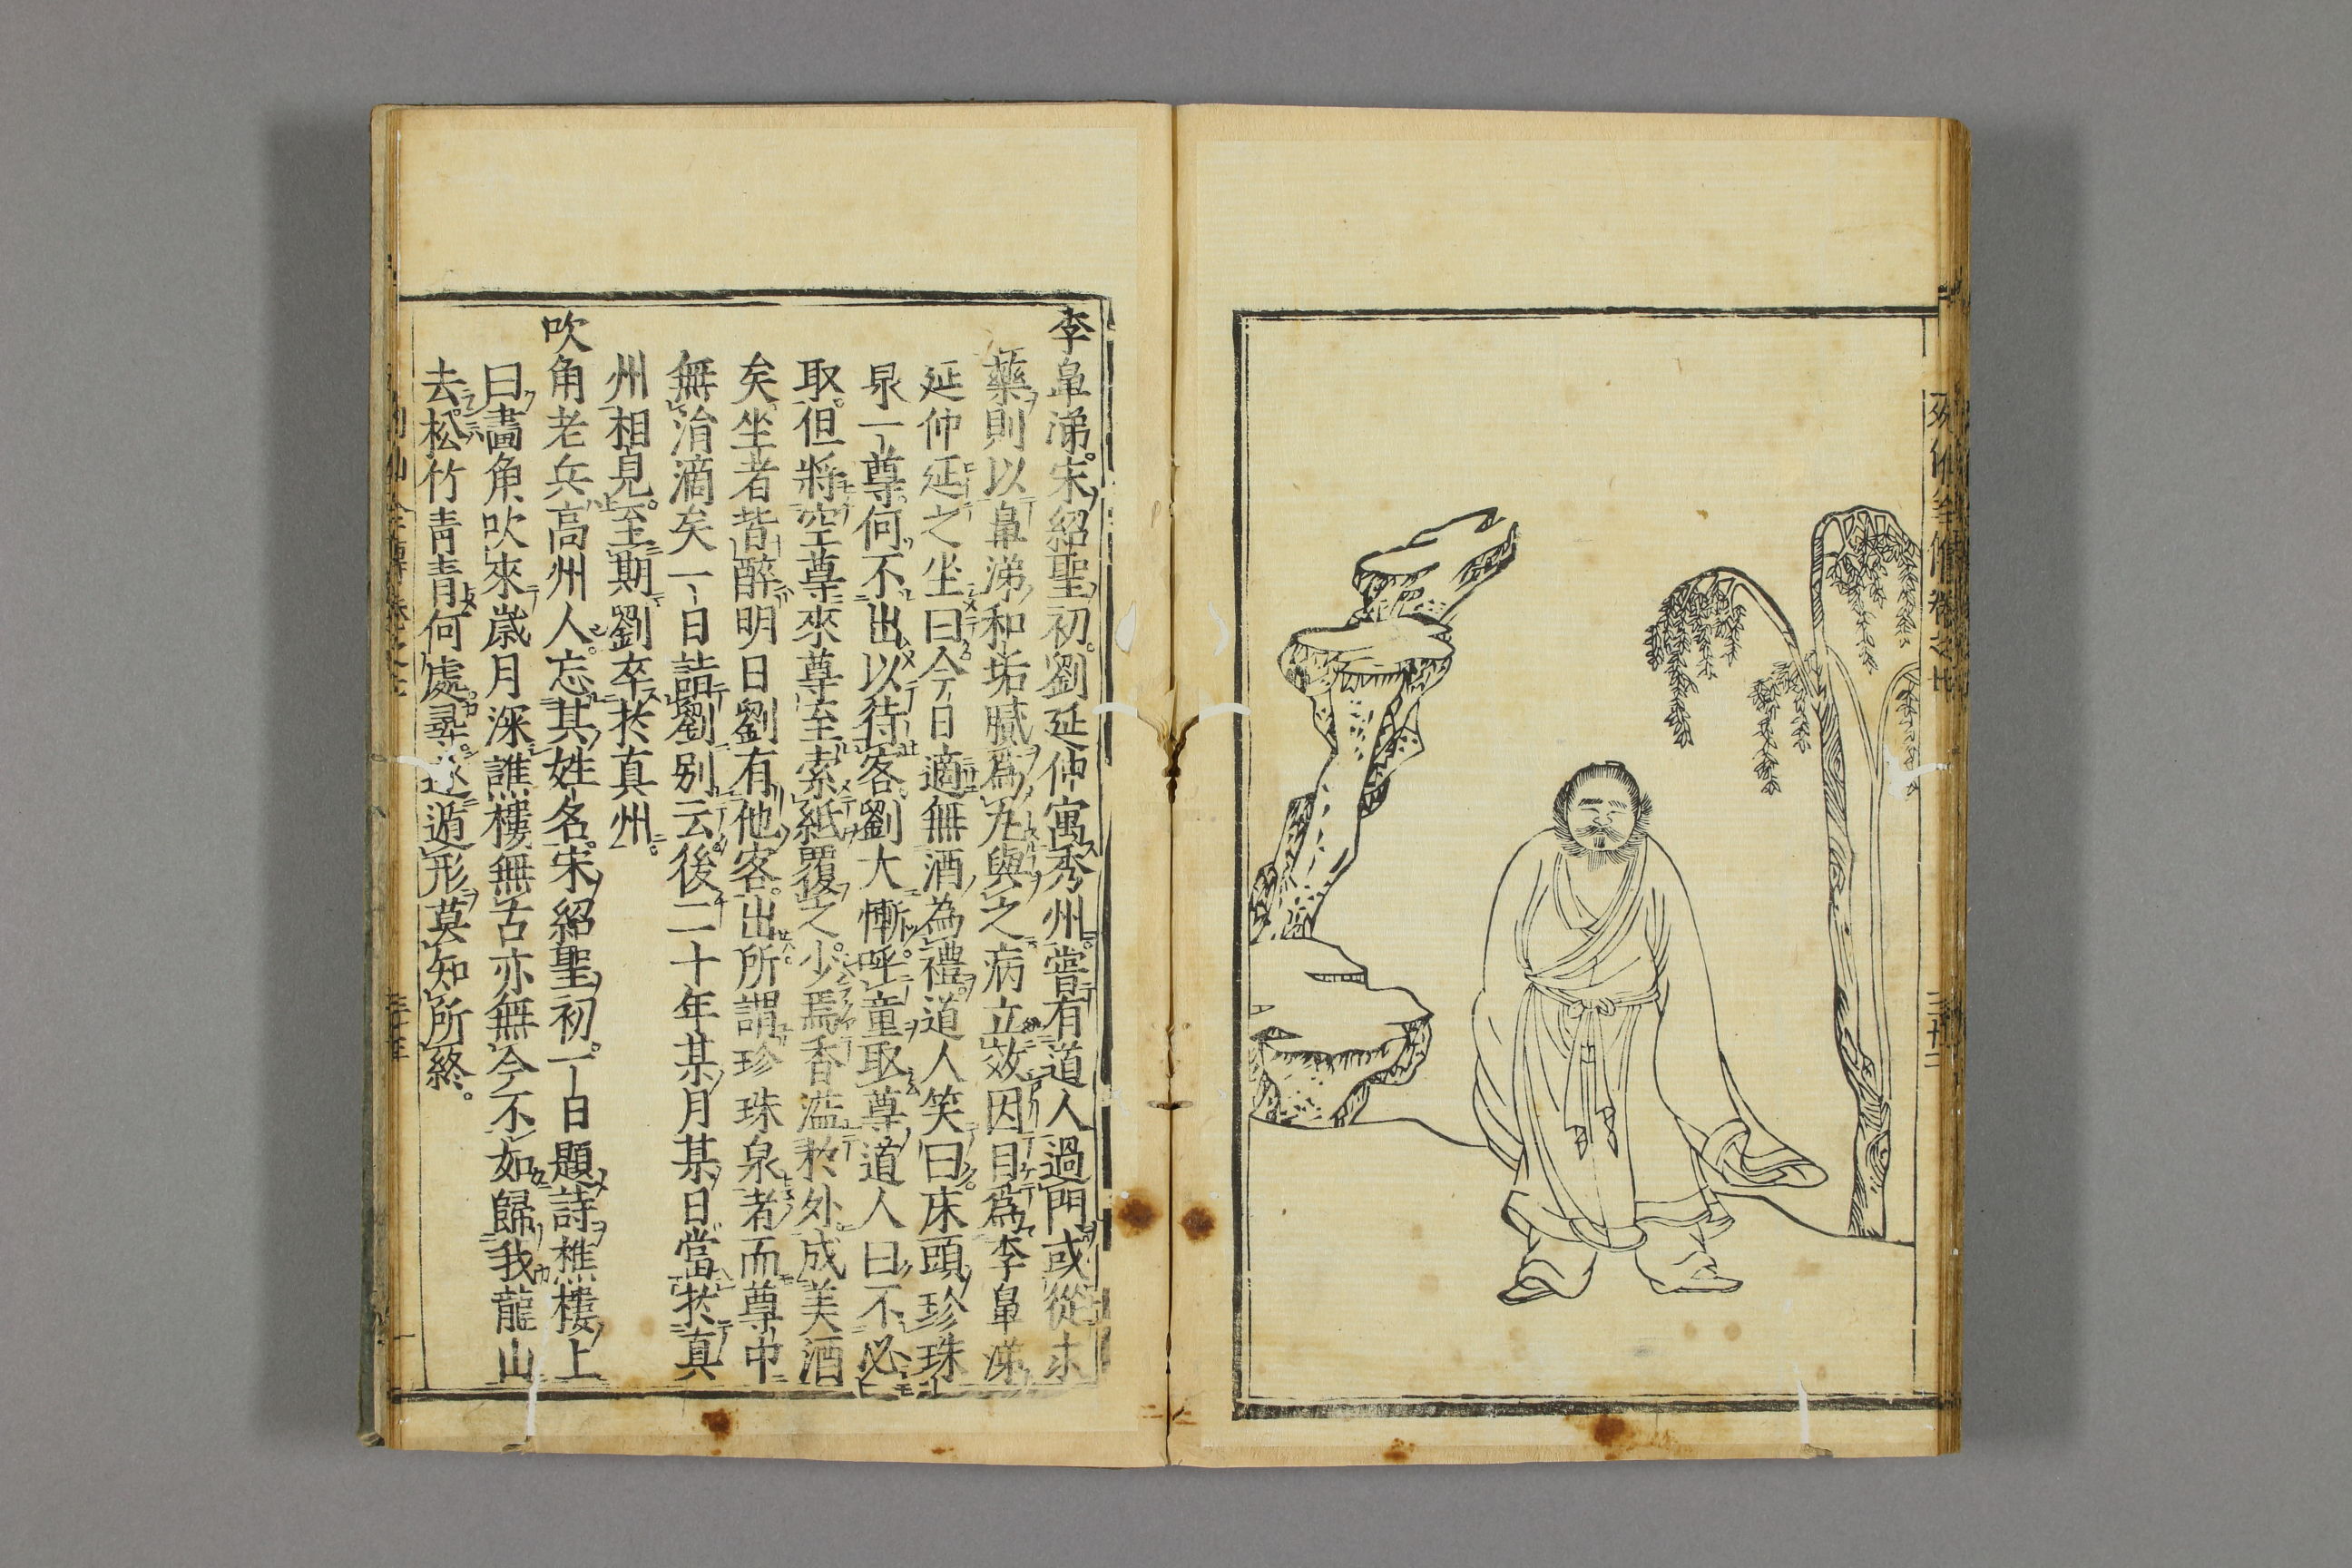 仙全傳卷之七
李鼻涕。宋紹聖初。劉延仲寓秀州。嘗有道人過門或從求
藥則以鼻涕和垢膩爲丸與之病立效因目爲李鼻涕
延仲延之坐曰今日適無酒為禮。道人笑曰。床頭珍珠
泉一尊。何不出以待客。劉大慚。呼童取尊道人曰不必
取。但將空尊來尊至索紙覆之。少焉香濫扵外。成美酒
矣坐者皆醉明日劉有他客。出所謂珍珠泉者而尊中
無涓滴矣一日詰劉别云。後二十年某月某日當扵真
州相見。至期劉卒扵真州。
吹角老兵高州人。忘其姓名。宋紹聖初。一日題詩樵樓上
曰畵角吹來歲月深譙樓無古亦無今不如歸我龍山
去。松竹青青何處尋。遂遁形莫知所終。